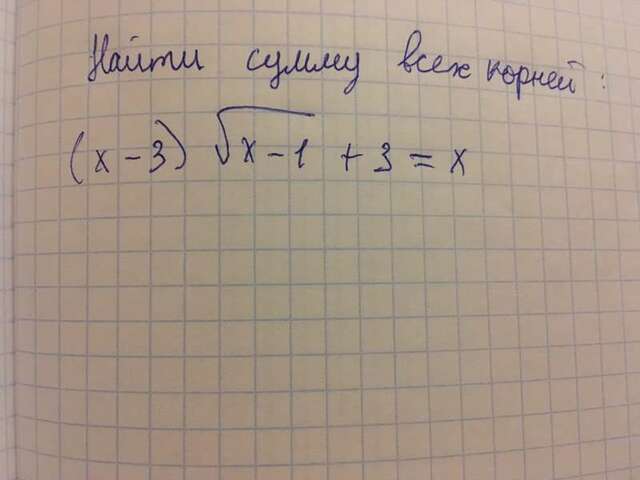 Найти сумму всех корней:
(x-3) √x-1 + 3 = x